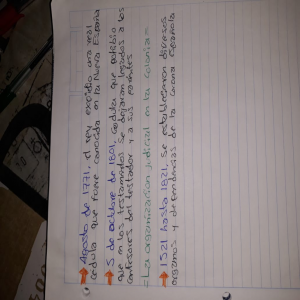 Agosto de 1771, el rey expidio una real
cedula que fuere conocida en la Nueva España
5 de octubre de 1801, cedula que prohibia
que en los testamentos se dejaran legados a los
confesores del testador y a sus parientes
=La organizacion judicial en la Colonia=
1521 hasta 1821, se establecieron diversos
organos y dependencias de la corona Española